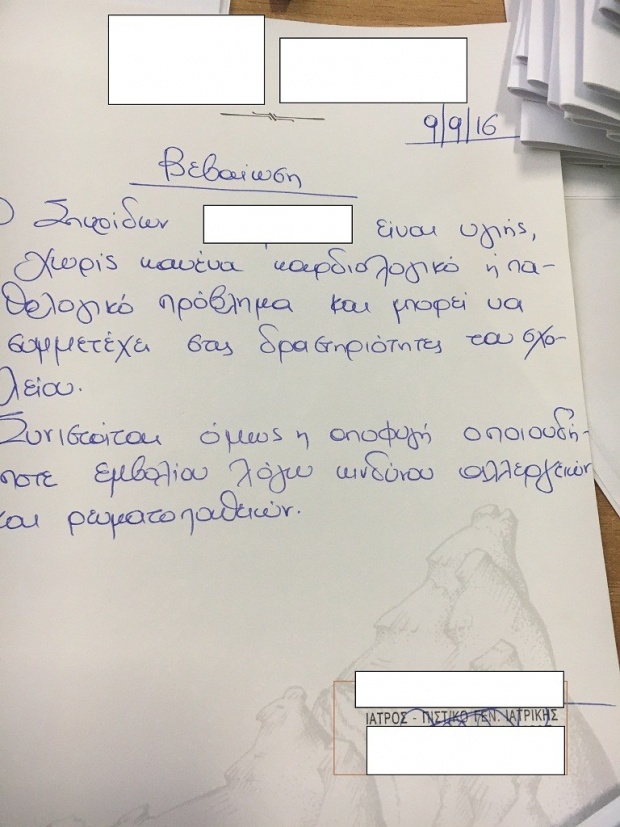 9/9/16
Βεβαίωση
Ο Σπυρίδων είναι υγιής,
χωρίς κανένα καρδιολογικό ή πα-
θολογικό πρόβλημα και μπορεί να
συμμετέχει στις δραστηριότητες του σχο-
λείου.
Συνιστάται όμως η αποφυγή οποιουδή-
ποτε εμβολίου λόγω κινδύνου αλλεργικών
και ρευματοπαθειών.
ΙΑΤΡΟΣ - ΠΙΣΤΙΚΟ ΓΕΝ. ΙΑΤΡΙΚΗΣ